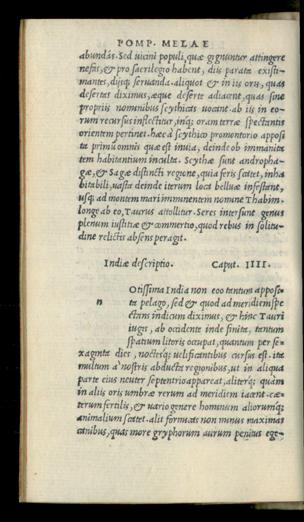 POMP. MELAE
abundãs. Sed uicini populi, quæ gignuntur attingere
nefas, & pro sacrilegio habent, diis parata existi-
mantes, diisq; seruanda. aliquot & in iis oris, quas
desertas diximus, æque deserte adiacent, quas sine
propriis nominibus scythicas uocant. ab iis in eo-
rum recursus inflectitur, inq; oram terræ spectantis
orientem pertinet. hæc à scythico promontorio apposi
ta primũ omnis quæ est inuia, deinde ob immanita
tem habitantium inculta. Scythæ sunt androphа-
gæ, & Sagæ distincti regione, quia feris scatet, inha
bitabili, uasta deinde iterum loca belluæ infestant,
usq; ad montem mari imminentem nomune Thabim.
longe ab eo, Taurus attollitur. Seres intersunt genus
plenum iustitiæ & commertio, quod rebus in solitu-
dine relictis absens peragit.
Indiæ descriptio. Caput. IIII.
Otissima India non eoo tantum apposi-
n ta pelago, sed & quod ad meridiem spe
ctans indicum diximus, & hinc Tauri
iugis, ab occidente inde finita, tantum
spatium litoris occupat, quantum per se-
xaginta dies, noctesq; uelificantibus cursus est. ita
multum à nostris abducta regionibus, ut in aliqua
parte eius neuter septentrio appareat, aliterq; quàm
in aliis oris umbræ rerum ad meridiem iacent. cæ-
terum fertilis, & uario genere hominum aliorumq;
animalium scatet. alit formicas non minus maximas
canibus, quas more gryphorum aurum penitus ege-